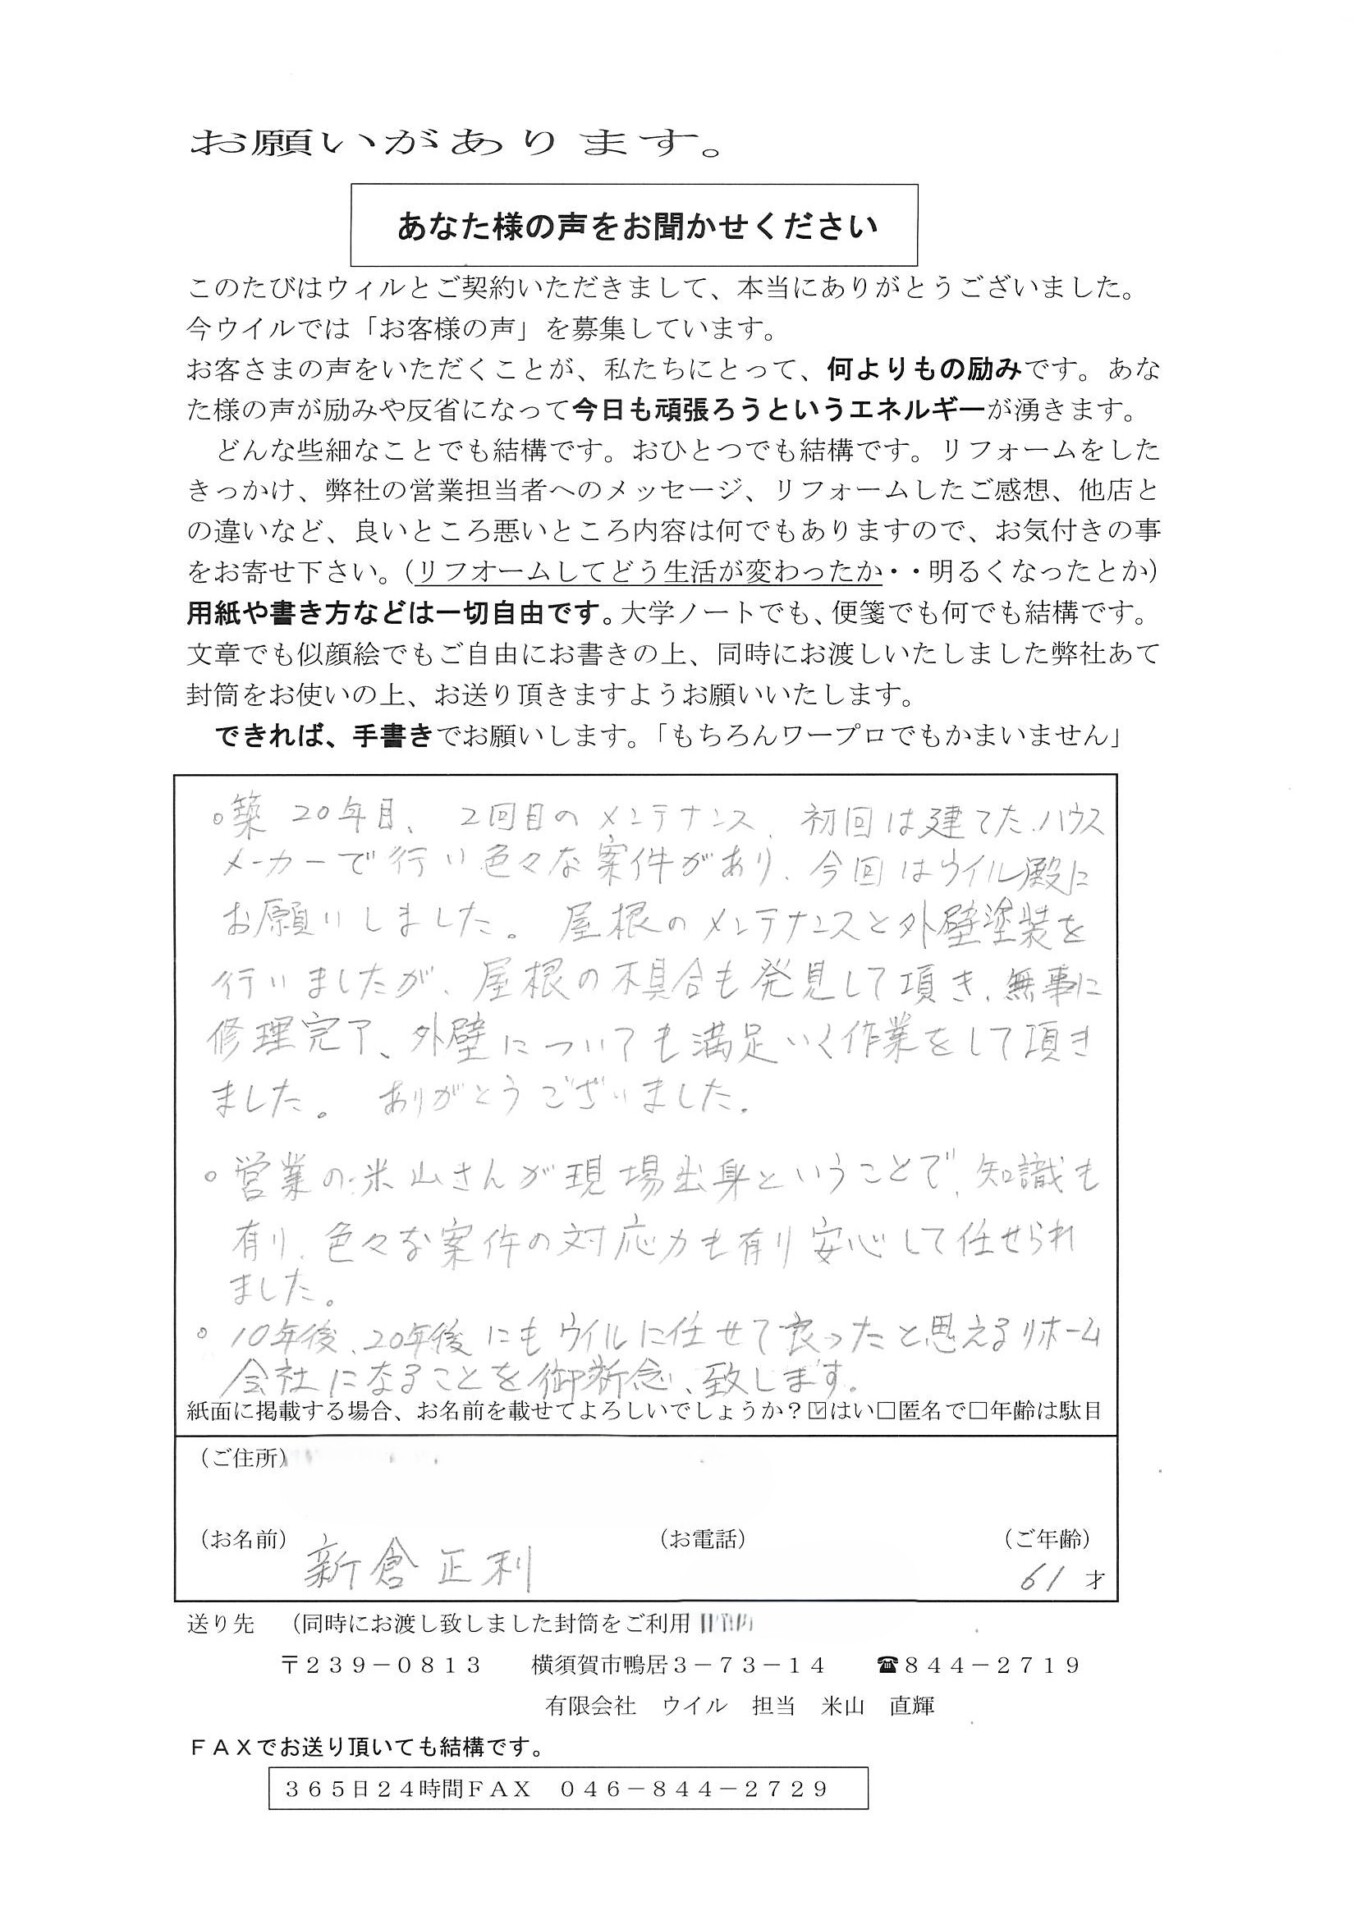 お願いがあります。
あなた様の声をお聞かせください
このたびはウィルとご契約いただきまして、本当にありがとうございました。
今ウイルでは「お客様の声」を募集しています。
お客さまの声をいただくことが、私たちにとって、何よりもの励みです。あな
た様の声が励みや反省になって今日も頑張ろうというエネルギーが湧きます。
どんな些細なことでも結構です。おひとつでも結構です。リフォームをした
きっかけ、弊社の営業担当者へのメッセージ、リフォームしたご感想、他店と
の違いなど、良いところ悪いところ内容は何でもありますので、お気付きの事
をお寄せ下さい。（リフオームしてどう生活が変わったか・・明るくなったとか）
用紙や書き方などは一切自由です。大学ノートでも、便箋でも何でも結構です。
文章でも似顔絵でもご自由にお書きの上、同時にお渡しいたしました弊社あて
封筒をお使いの上、お送り頂きますようお願いいたします。
できれば、手書きでお願いします。「もちろんワープロでもかまいません」
○築20年目、2回目のメンテナンス、初回は建てたハウス
メーカーで行い色々な案件があり、今回はウイル殿に
お願いしました。屋根のメンテナンスと外壁塗装を
行いましたが、屋根の不具合も発見して頂き、無事に
修理完了、外壁についても満足いく作業をして頂き
ました。ありがとうございました。
○営業の米山さんが現場出身ということで、知識も
有り、色々な案件の対応力も有り安心して任せられ
ました。
○10年後、20年後にもウイルに任せて良かったと思えるリホーム
会社になることを御断念、致します。
紙面に掲載する場合、お名前を載せてよろしいでしょうか？☑はい□匿名で□年齢は駄目
（ご住所）
（お名前） 新倉正利 （お電話） （ご年齢） 61才
送り先 （同時にお渡し致しました封筒をご利用
〒239－0813 横須賀市鴨居3－73－14 ☎844－2719
有限会社 ウイル 担当 米山 直輝
ＦＡＸでお送り頂いても結構です。
365日24時間ＦＡＸ 046－844－2729